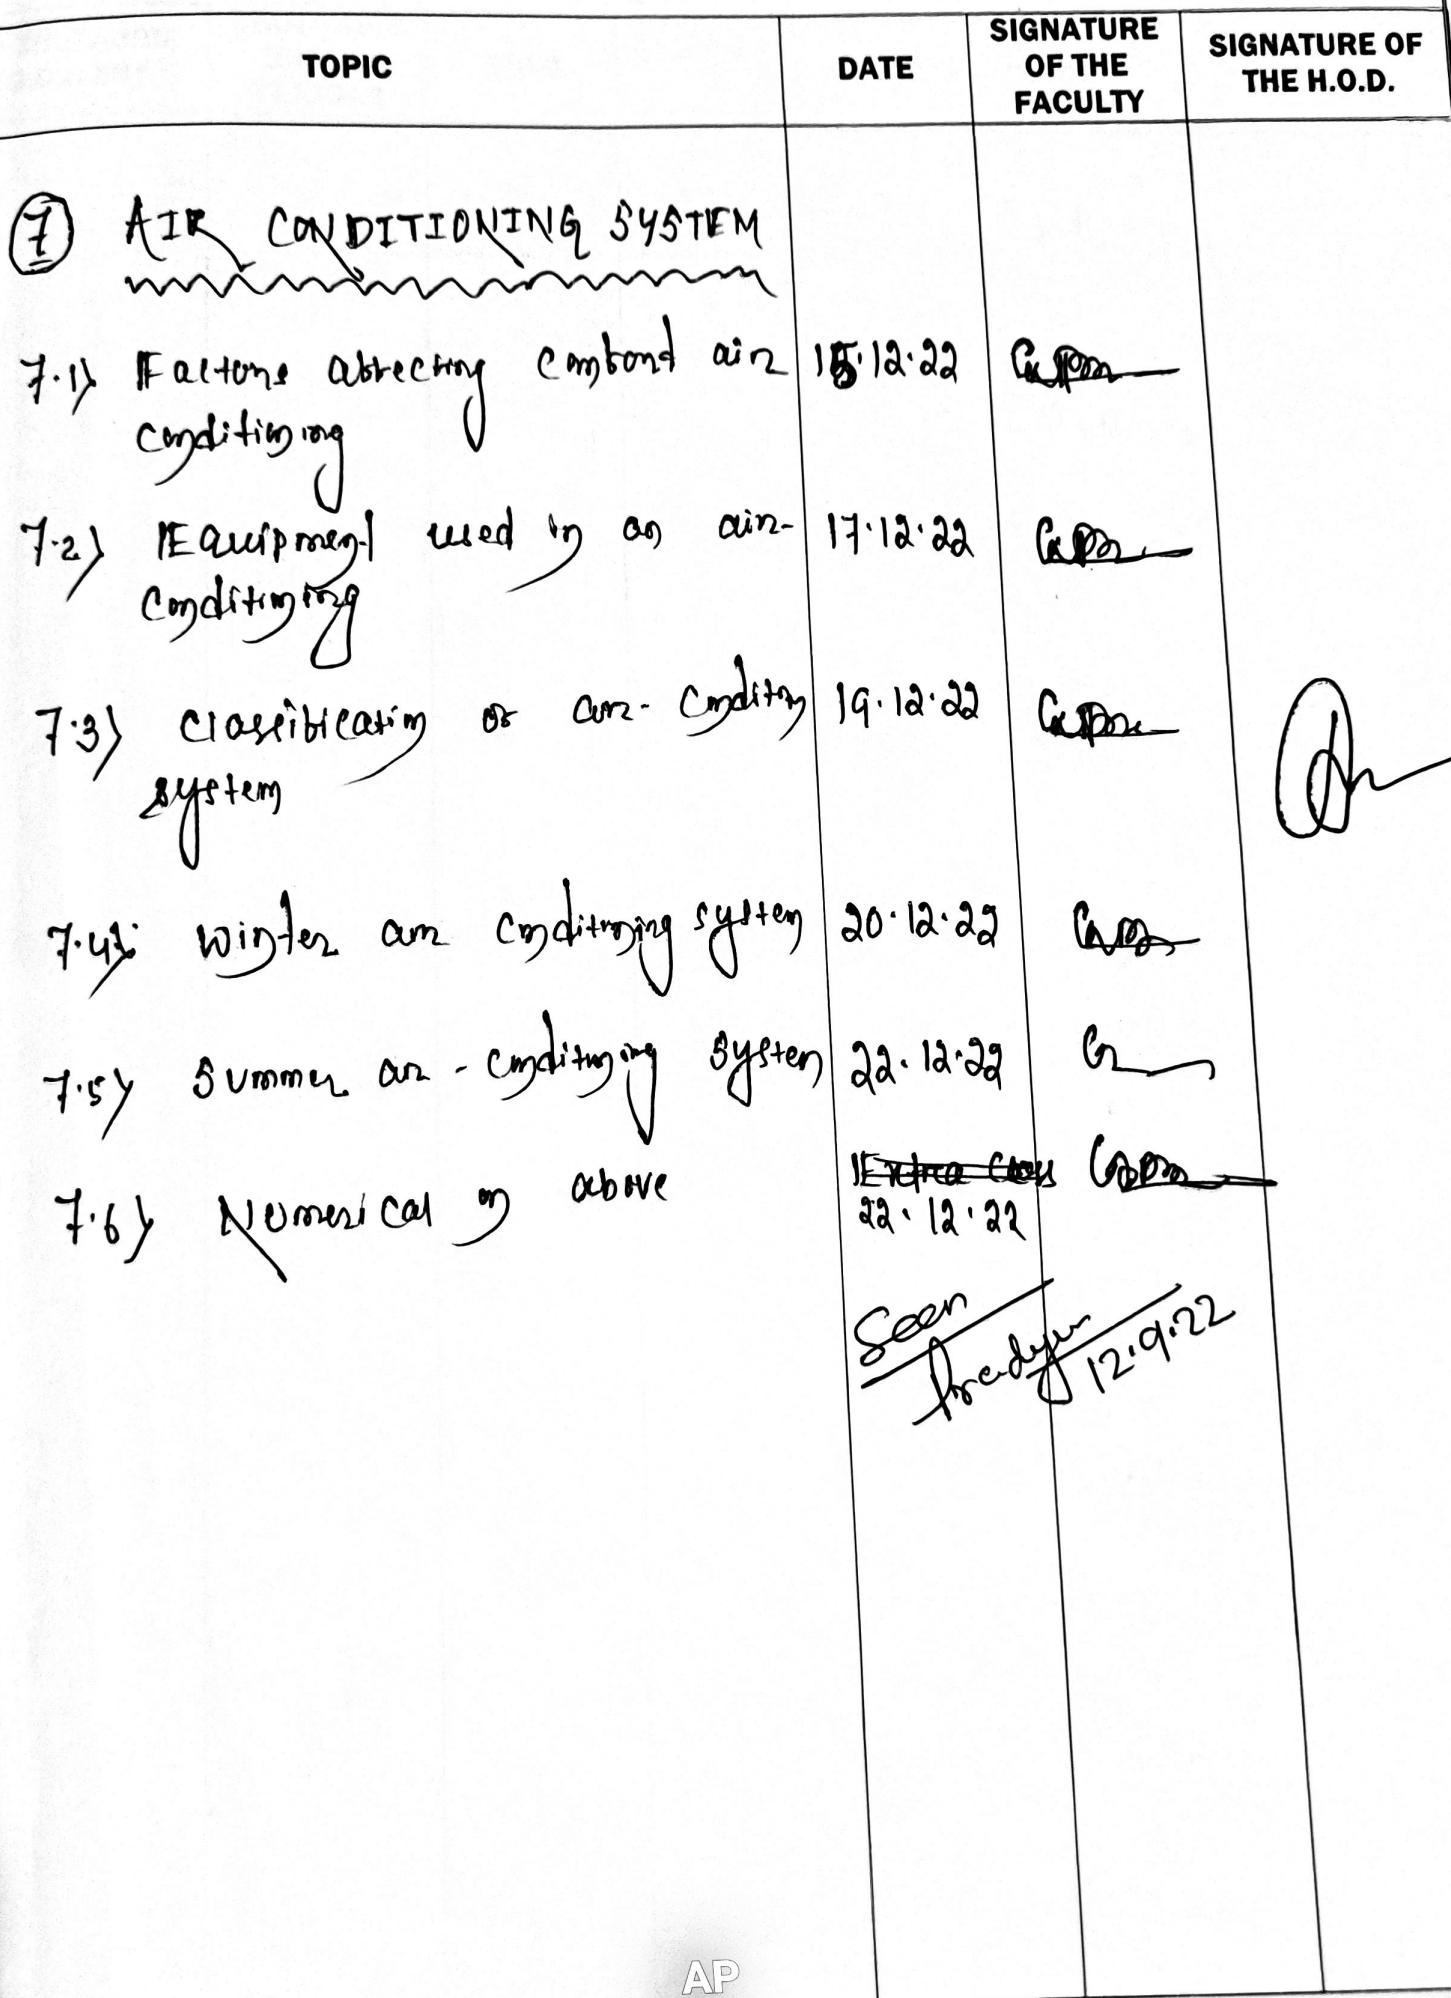 TOPIC
DATE
SIGNATURE OF THE FACULTY
SIGNATURE OF THE H.O.D.
7 AIR CONDITIONING SYSTEM
7.1) Factors affecting comfort air 15.12.22
conditioning
7.2) Equipment used in an air- 17.12.22
conditioning
7.3) Classification of air-condition 19.12.22
system
7.4) Winter air conditioning system 20.12.22
7.5) Summer air-conditioning system 22.12.22
Extra Class
7.6) Numerical on above 22.12.22
Seen
12.9.22
AP